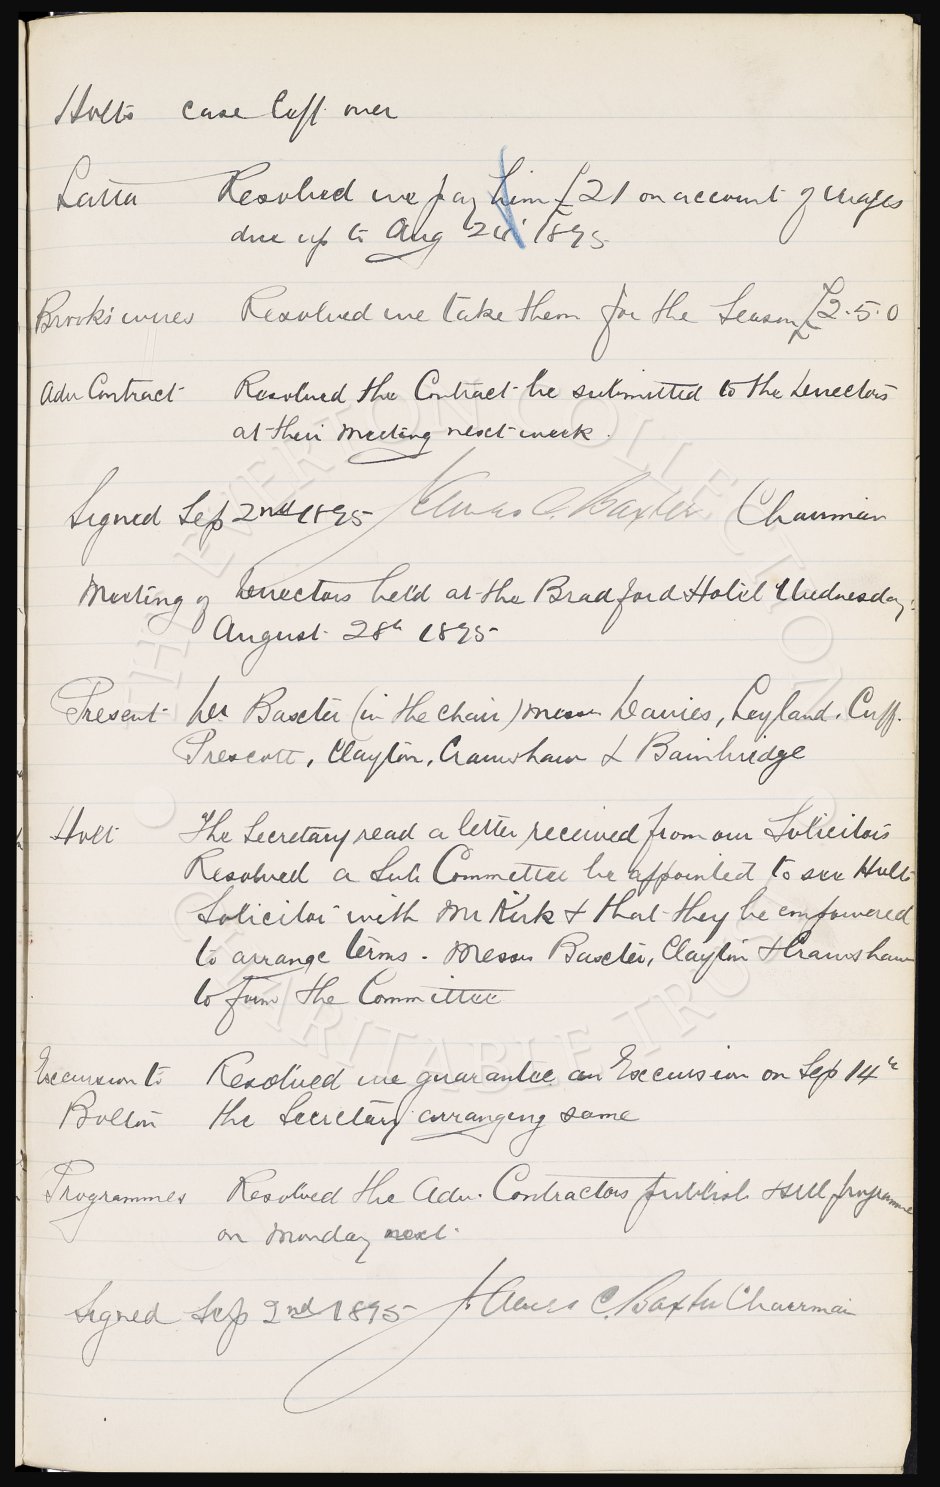 Holts case left over
Latta Resolved we pay him £21 on account of wages
due up to Aug 24th 1895
Brooks wires Resolved we take them for the Season £2.5.0
Adv Contract Resolved the Contract be submitted to the Directors
at their meeting next week.
Signed Sep 2nd 1895 James C. Baxter Chairman
Meeting of Directors held at the Bradford Hotel Wednesday
August 28th 1895
Present Dr. Baxter (in the chair) Messrs Davies, Leyland, Cuff.
Prescott, Clayton, Crawshaw & Bainbridge
Holt The Secretary read a letter received from our Solicitors
Resolved a Sub Committee be appointed to see Holts
Solicitor with Mr Kirk & that they be empowered
to arrange terms. Messrs Baxter, Clayton & Crawshaw
to form the Committee
Excursion to Resolved we guarantee an Excursion on Sep 14th
Bolton the Secretary arranging same
Programmes Resolved the Adv. Contractors publish & sell programme
on Monday next.
Signed Sep 2nd 1895 James C. Baxter Chairman
THE EVERTON COLLECTION
CHARITABLE TRUST